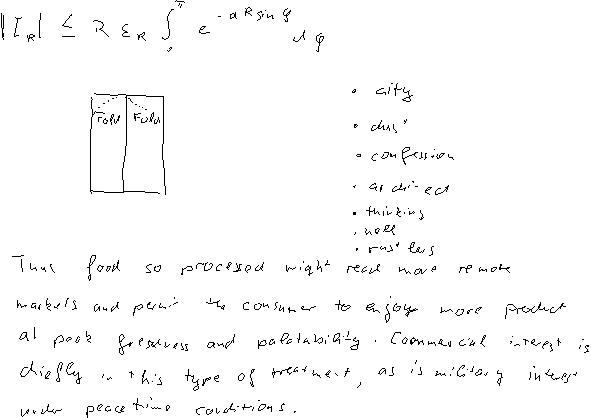 |I_R| ≤ R ε_R ∫_0^π e^{-aR sin φ} dφ
Fold Fold
• city
• dust
• confession
• architect
• thinking
• hall
• rustlers
Thus food so processed might reach more remote
markets and permit the consumer to enjoy more product
at peak freshness and palatability. Commercial interest is
chiefly in this type of treatment, as is military interest
under peacetime conditions.